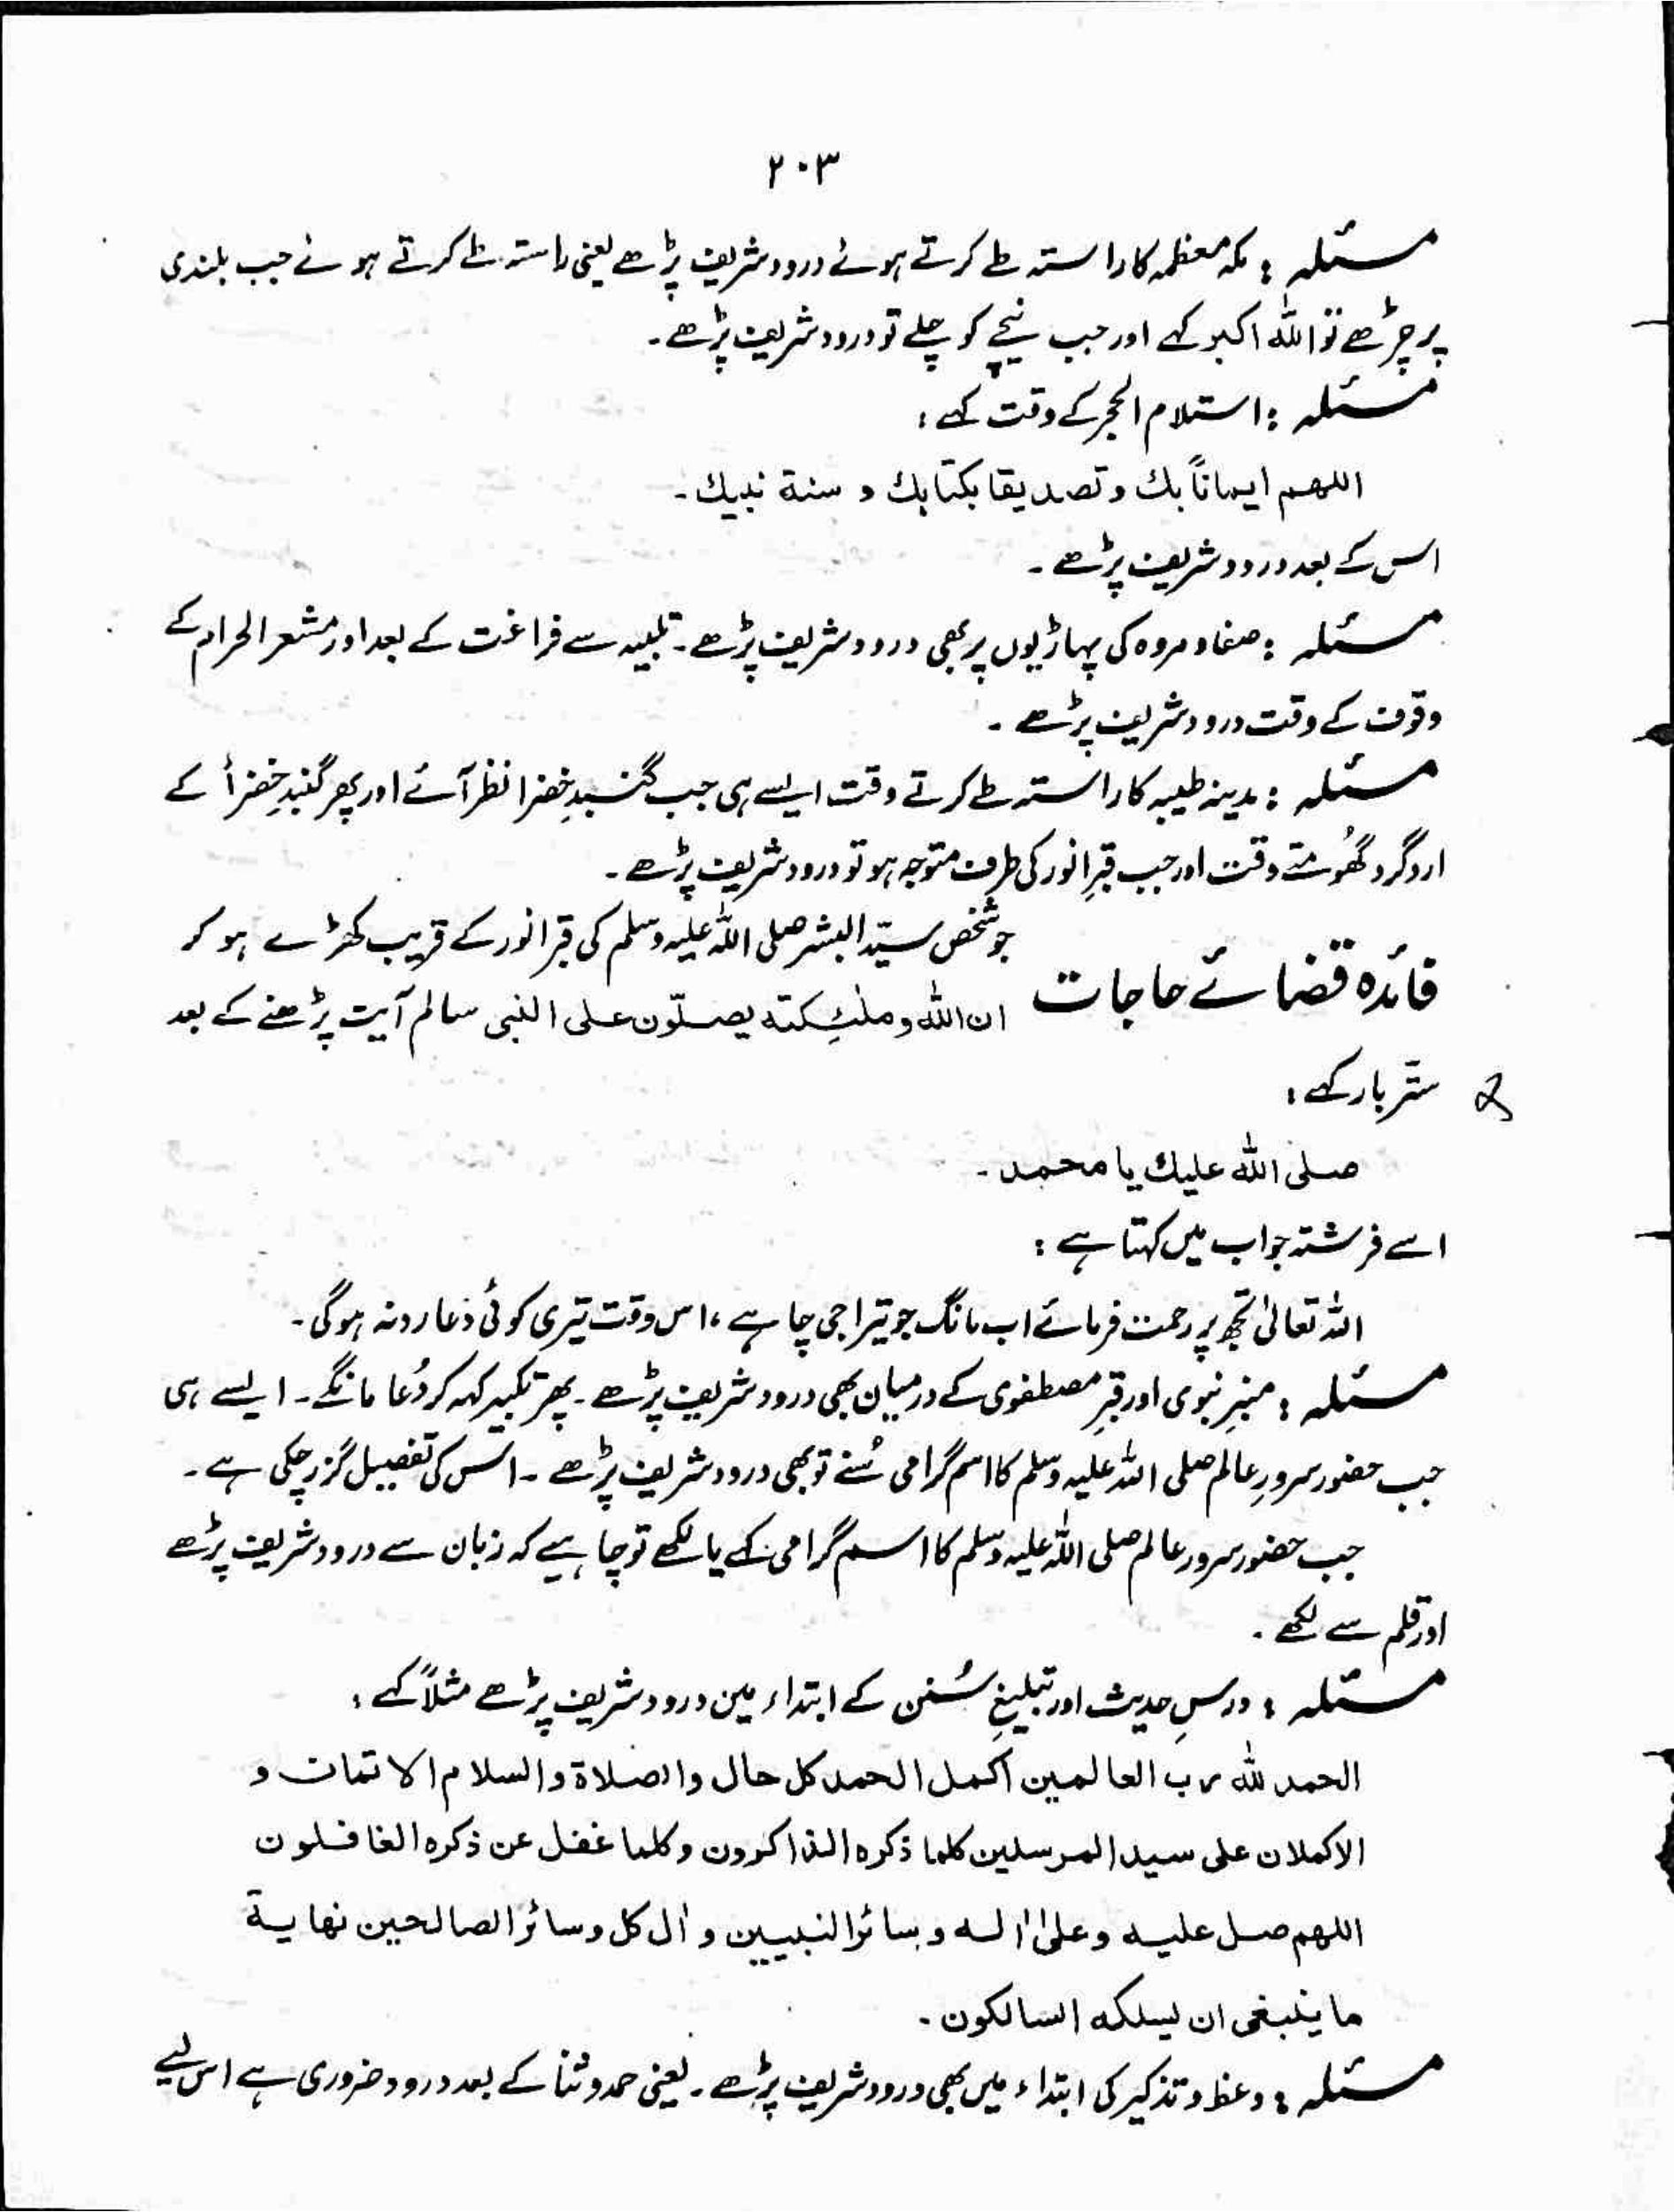 ۲۰۳
مسئلہ : مکہ معظمہ کا راستہ طے کرتے ہوئے درود شریف پڑھے یعنی راستہ طے کرتے ہوئے جب بلندی
پر چڑھے تو اللہ اکبر کہے اور جب نیچے کو چلے تو درود شریف پڑھے۔
مسئلہ : استلام الحجر کے وقت کہے :
اللهم ايماناً بك و تصديقا بكتابك و سنة نبيك ۔
اس کے بعد درود شریف پڑھے ۔
مسئلہ : صفا و مروہ کی پہاڑیوں پر بھی درود شریف پڑھے۔ تلبیہ سے فراغت کے بعد اور مشعر الحرام کے
وقوف کے وقت درود شریف پڑھے ۔
مسئلہ : مدینہ طیبہ کا راستہ طے کرتے وقت ایسے ہی جب گنبدِ خضرا نظر آئے اور پھر گنبدِ خضرأ کے
اردگرد گھُومتے وقت اور جب قبرِ انور کی طرف متوجہ ہو تو درود شریف پڑھے ۔
فائدہ قضائے حاجات
جو شخص سیّد البشر صلی اللہ علیہ وسلم کی قبر انور کے قریب کھڑے ہو کر
ان الله و ملٰئِكته يصلّون على النبى سالم آیت پڑھنے کے بعد
ستّر بار کہے :
صلى الله عليك يا محمد ۔
اسے فرشتہ جواب میں کہتا ہے :
اللہ تعالیٰ تجھ پر رحمت فرمائے اب مانگ جو تیرا جی چاہے ، اس وقت تیری کوئی دُعا رد نہ ہوگی ۔
مسئلہ : منبرِ نبوی اور قبرِ مصطفوی کے درمیان بھی درود شریف پڑھے ۔ پھر تکبیر کہہ کر دُعا مانگے ۔ ایسے ہی
جب حضور سرورِ عالم صلی اللہ علیہ وسلم کا اسم گرامی سُنے تو بھی درود شریف پڑھے ۔ اس کی تفصیل گزر چکی ہے ۔
جب حضور سرور عالم صلی اللہ علیہ وسلم کا اسم گرامی کہے یا لکھے تو چاہیے کہ زبان سے درود شریف پڑھے
اور قلم سے لکھے ۔
مسئلہ : درسِ حدیث اور تبلیغِ سُنن کے ابتداء میں درود شریف پڑھے مثلاً کہے :
الحمد لله رب العالمين اكمل الحمد كل حال والصلاة والسلام الاتمات و
الاكملان على سيد المرسلين كلما ذكره الذاكرون و كلما غفل عن ذكره الغافلون
اللهم صل عليه و علىٰ اٰله و سائر النبيين و اٰل كل و سائر الصالحين نهاية
ما ينبغى ان يسلكه السالكون ۔
مسئلہ : وعظ و تذکیر کی ابتداء میں بھی درود شریف پڑھے ۔ یعنی حمد و ثنا کے بعد درود ضروری ہے اس لیے